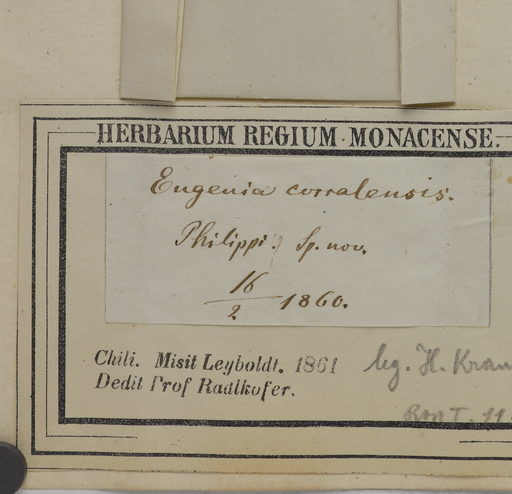 HERBARIUM REGIUM MONACENSE.
Eugenia corralensis.
Philippi. Sp. nov.
16/2 1860.
Chili. Misit Leyboldt. 1861
leg. H.
Dedit Prof Radlkofer.